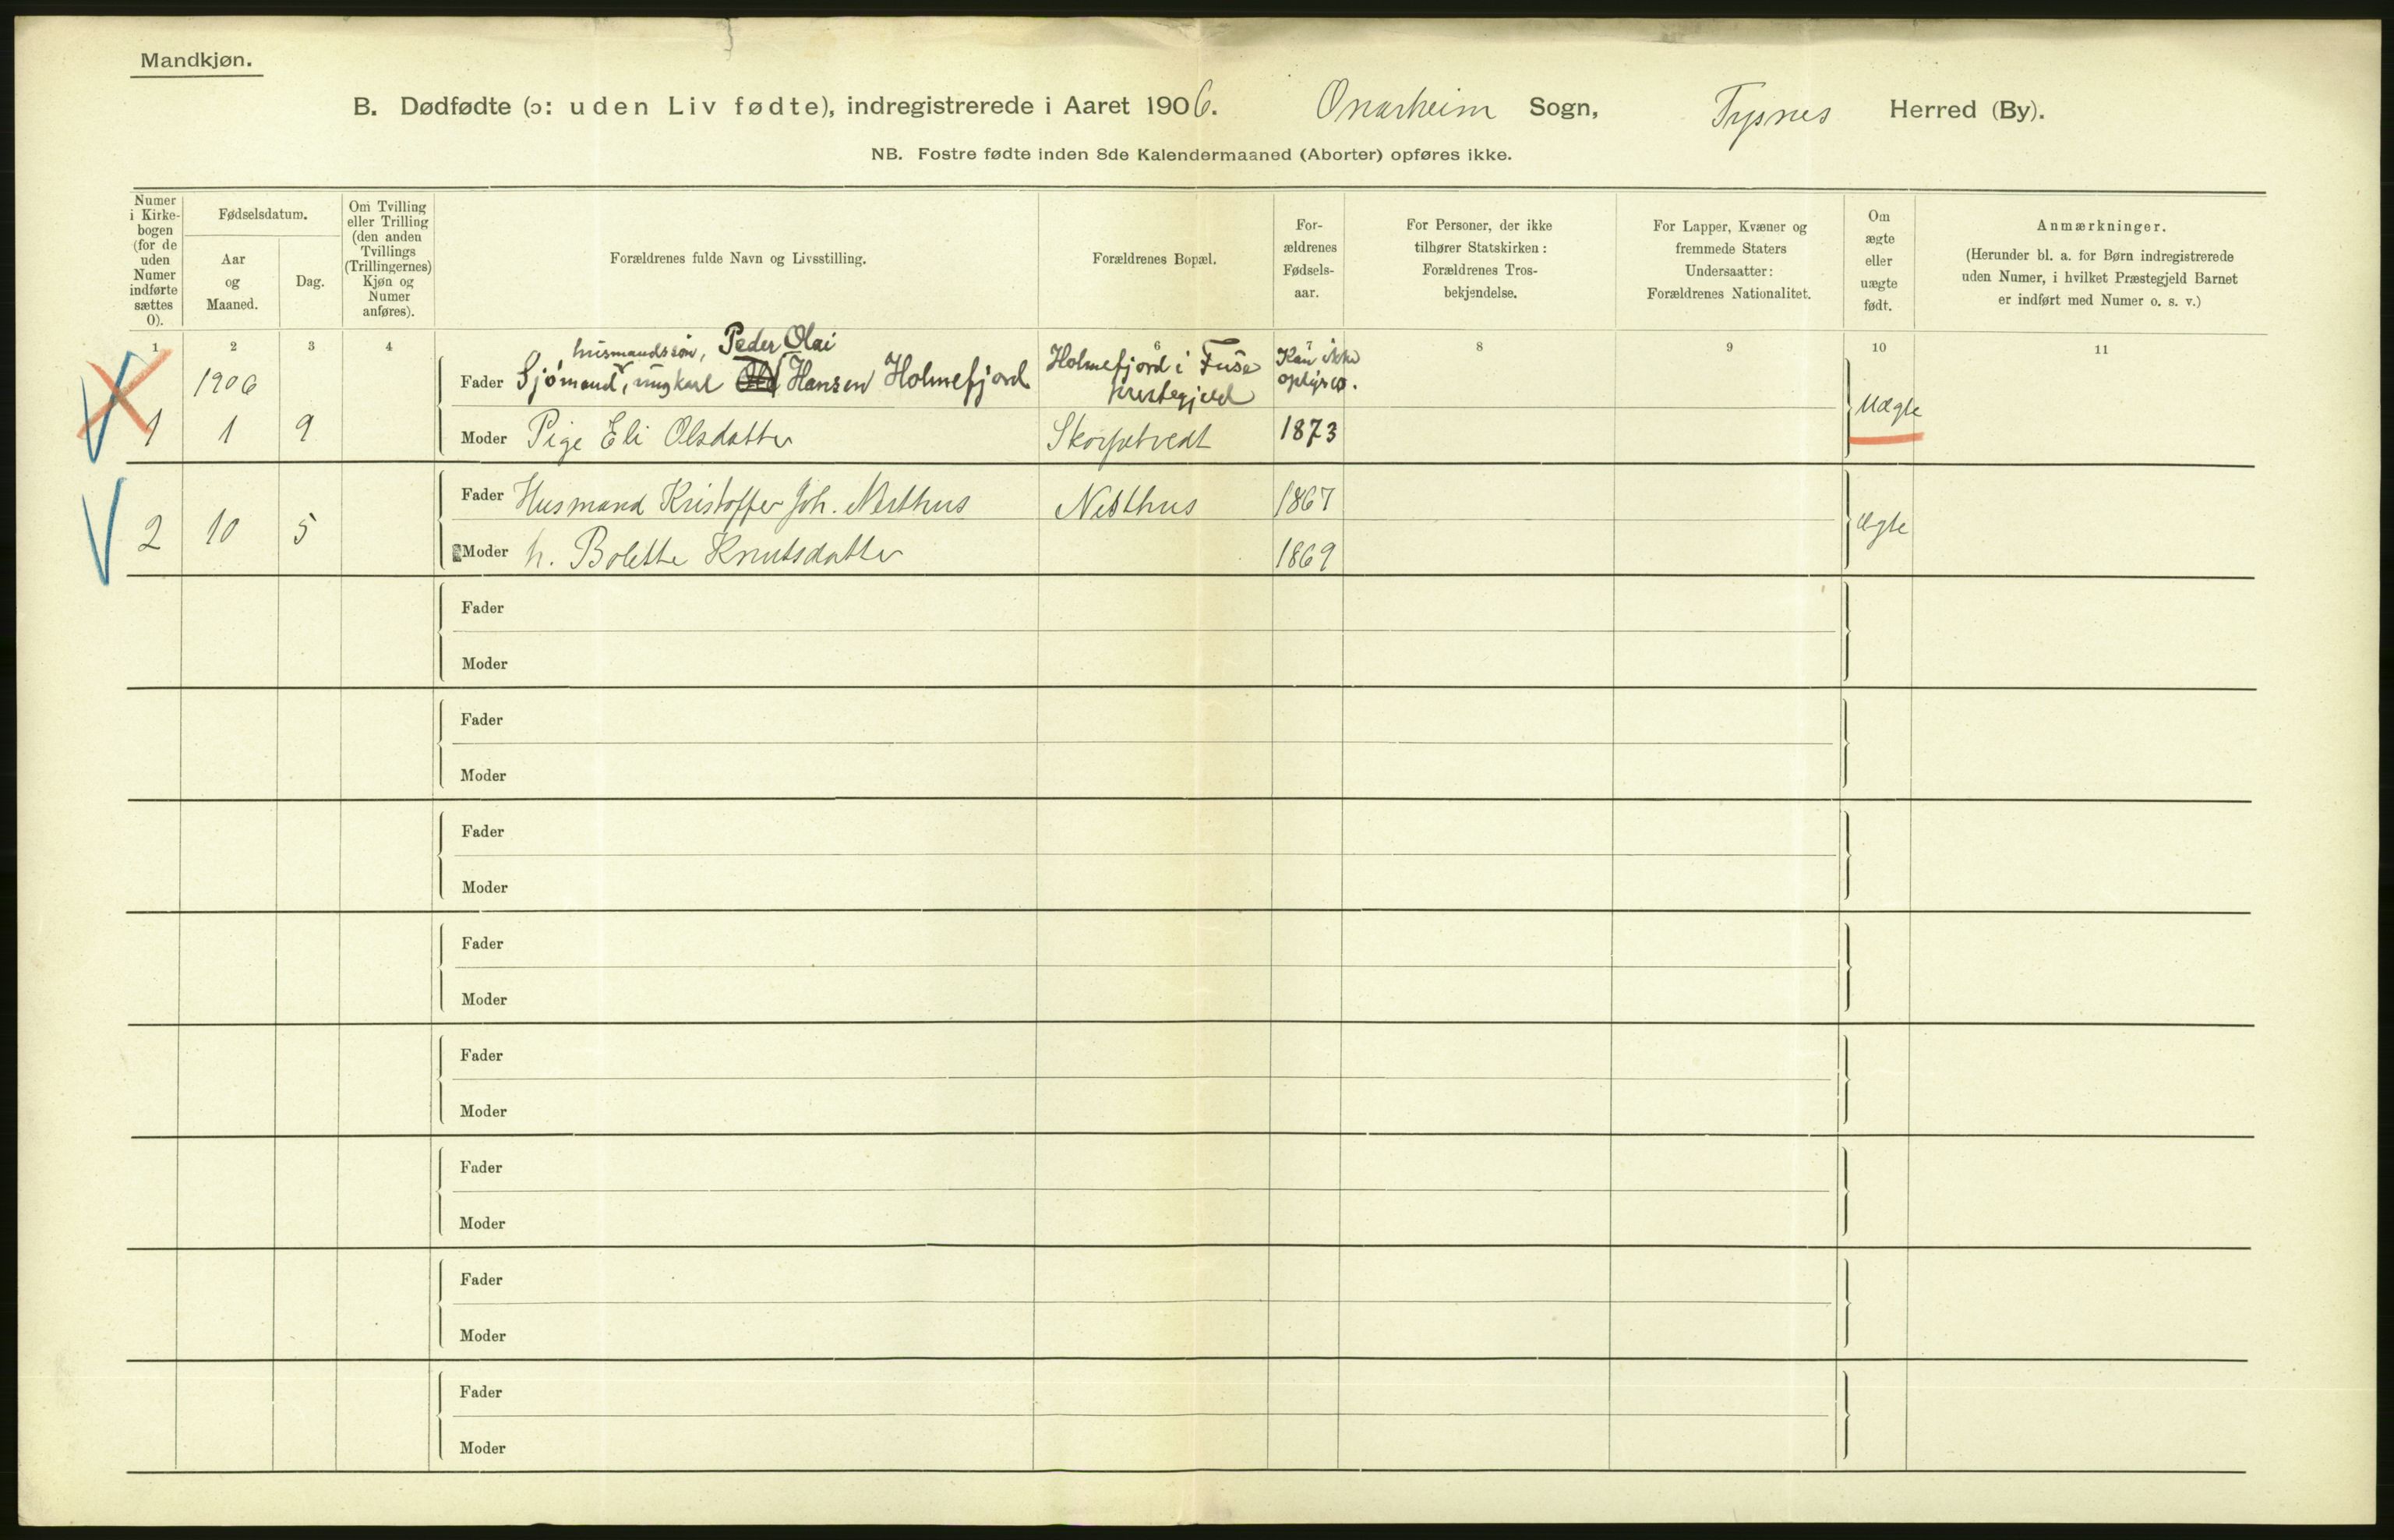 Mandkjøn.
B. Dødfødte (ɔ: uden Liv fødte), indregistrerede i Aaret 1906. Onarheim Sogn, Tysnes Herred (By).
NB. Fostre fødte inden 8de Kalendermaaned (Aborter) opføres ikke.
Numer i Kirke-bogen (for de uden Numer indførte sættes 0).
Fødselsdatum.
Aar og Maaned.
Dag.
Om Tvilling eller Trilling (den anden Tvillings (Trillingernes) Kjøn og Numer anføres).
Forældrenes fulde Navn og Livsstilling.
Forældrenes Bopæl.
For-ældrenes Fødsels-aar.
For Personer, der ikke tilhører Statskirken: Forældrenes Tros-bekjendelse.
For Lapper, Kvæner og fremmede Staters Undersaatter: Forældrenes Nationalitet.
Om ægte eller uægte født.
Anmærkninger.
(Herunder bl. a. for Børn indregistrerede uden Numer, i hvilket Præstegjeld Barnet er indført med Numer o. s. v.)
1 2 3 4 6 7 8 9 10 11
husmandssøn, Peder Olai
1906 Fader Sjømand, ungkarl Hansen Holmefjord Holmefjord i Fuse Prestegjeld Kan ikke oplyses.
1 1 9 Moder Pige Eli Olsdatter Skorpetvedt 1873 Uægte
Fader Husmand Kristoffer Joh. Nesthus Nesthus 1867
2 10 5 Moder h. Bolette Knutsdatter 1869 ægte
Fader
Moder
Fader
Moder
Fader
Moder
Fader
Moder
Fader
Moder
Fader
Moder
Fader
Moder
Fader
Moder